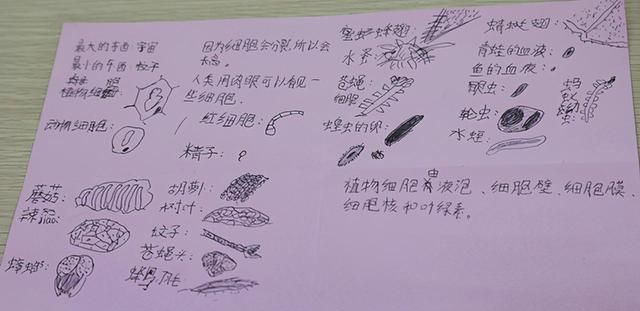 最大的东西：宇宙
最小的东西：粒子
植物细胞：
动物细胞：
因为细胞会分裂，所以会
长高。
人类用肉眼可以看见一
些细胞。
红细胞：
精子：
蘑菇：
辣jiao：
蟑螂：
胡萝卜：
树叶：
蚊子：
苍蝇头：
蜜蜂翅：
水蚤：
苍蝇
细胞：
蝗虫的卵：
蜻蜓翅：
青蛙的血液：
鱼的血液：
眼虫：
轮虫：
水蛭：
蚂
蚁
幼
虫：
植物细胞由液泡、细胞壁、细胞膜
细胞核和叶绿素。